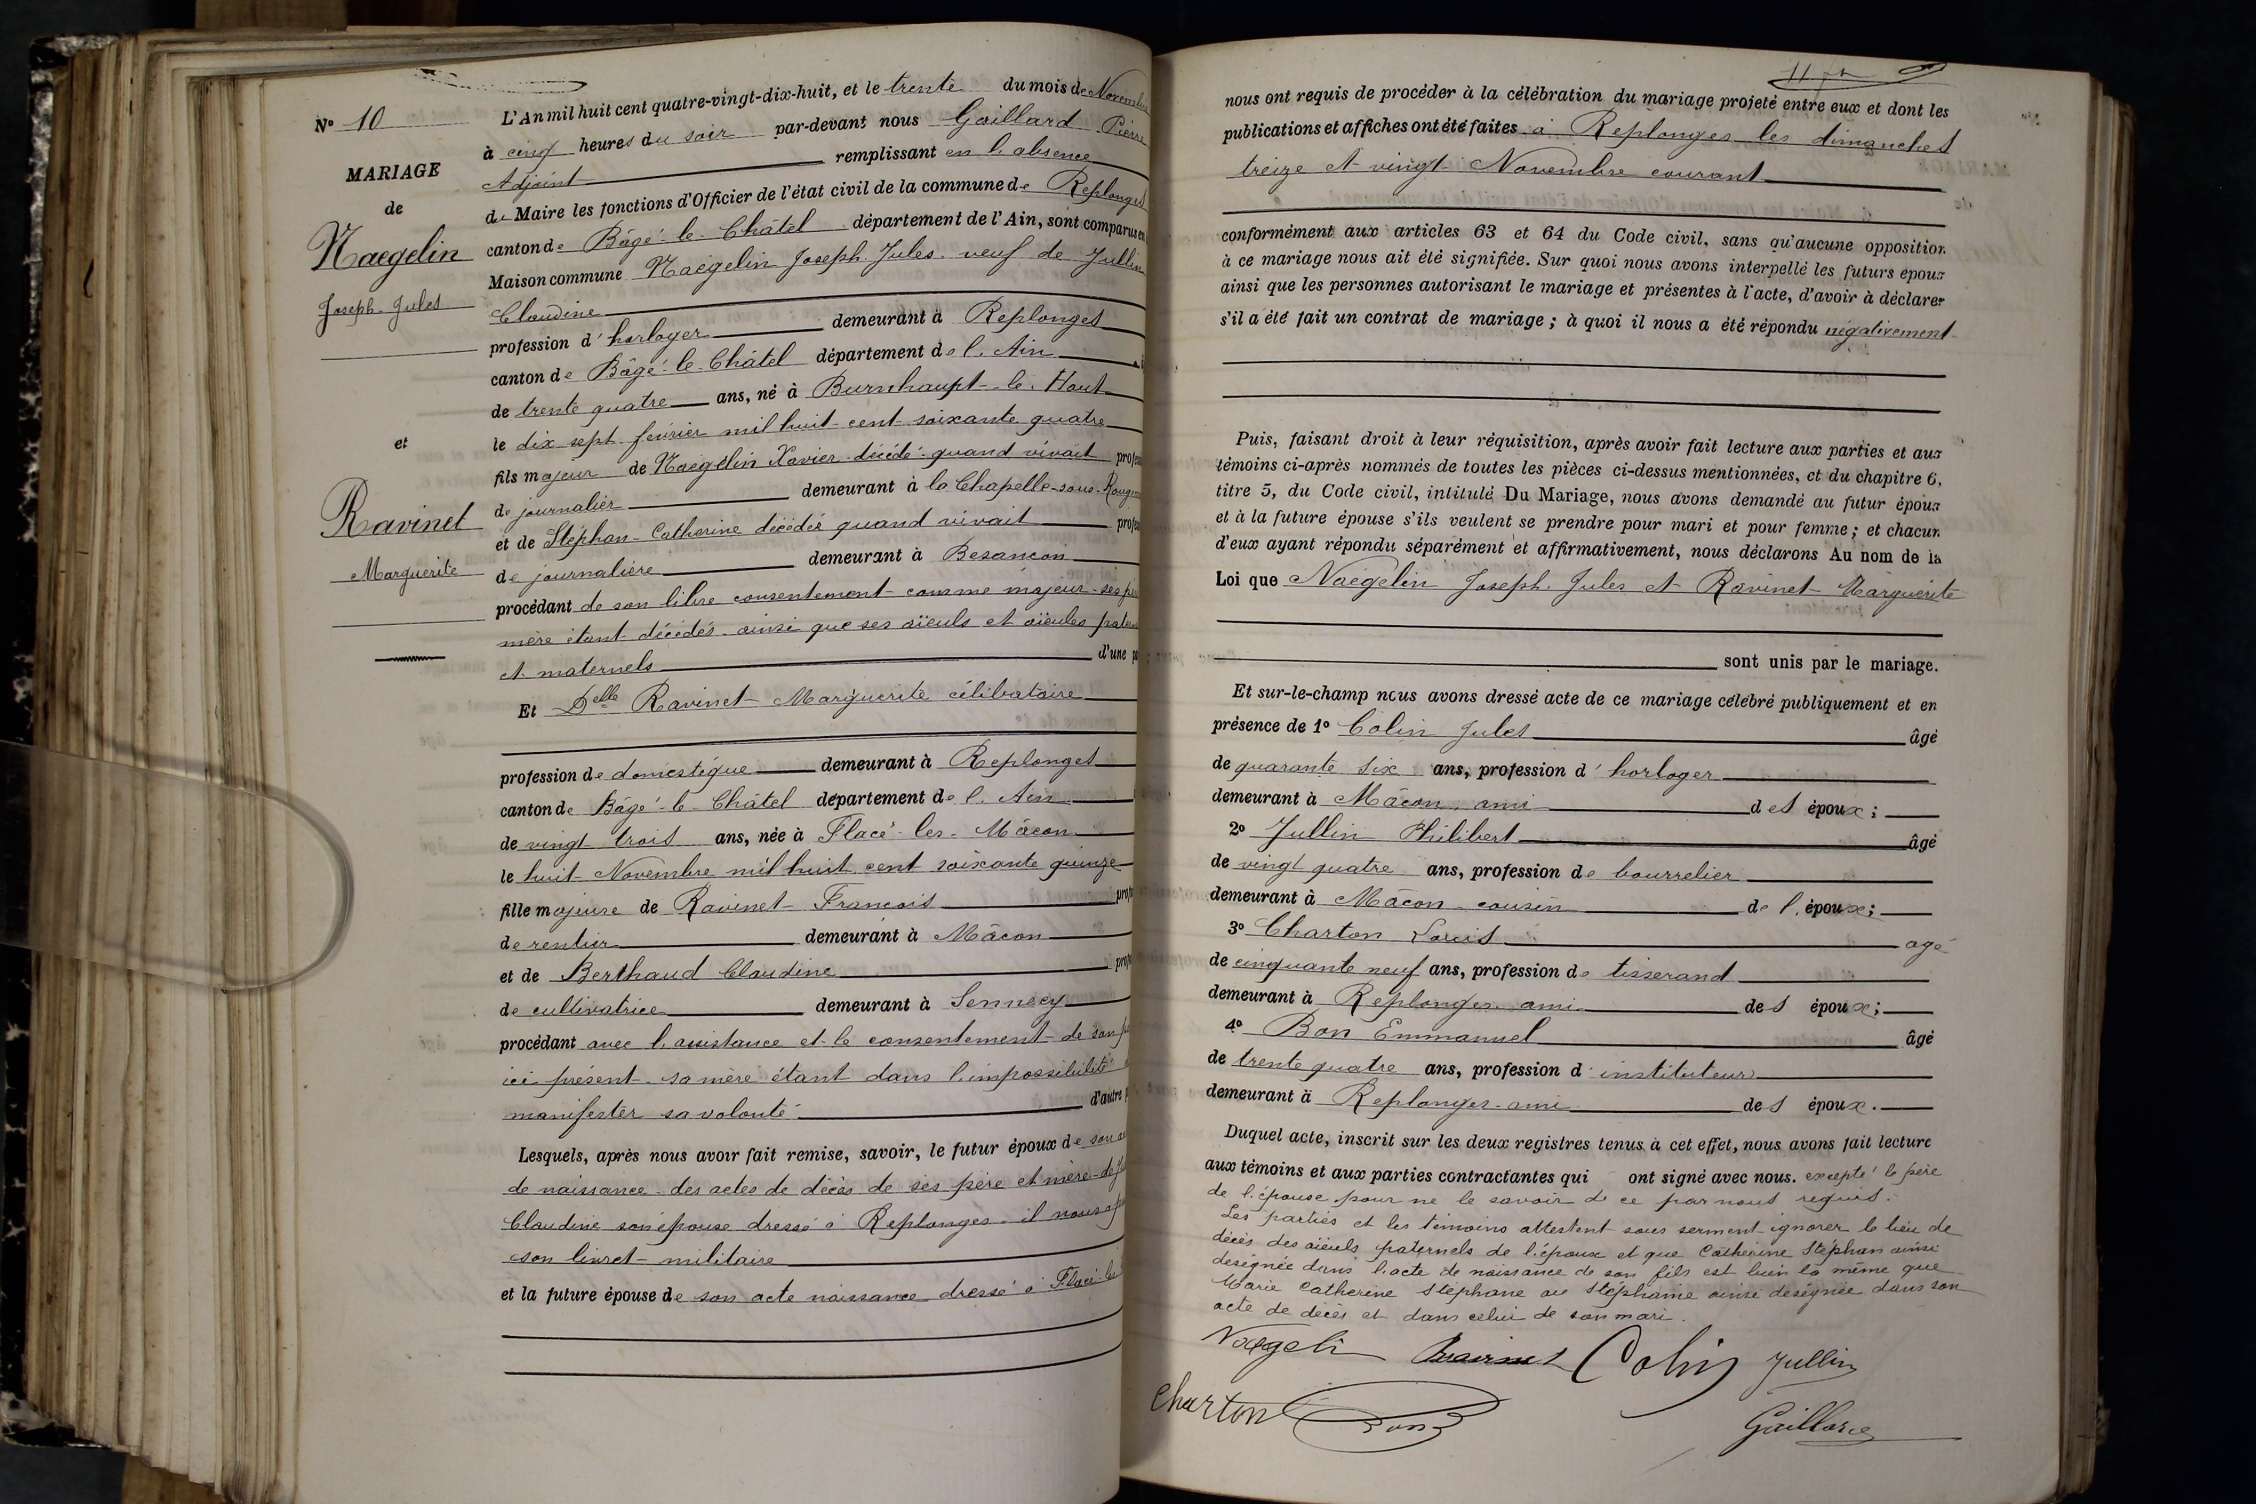 N° 10
MARIAGE
de
Naegelin
Joseph Jules
et
Ravinet
Marguerite
L'An mil huit cent quatre-vingt-dix-huit, et le trente du mois de Novembre
à cinq heures du soir par-devant nous Gaillard Pierre
Adjoint remplissant en l'absence
du Maire les fonctions d'Officier de l'état civil de la commune de Replonges
canton de Bâgé-le-Châtel département de l'Ain, sont comparus en
Maison commune Naegelin Joseph Jules veuf de Jullin
Claudine
profession d'horloger demeurant à Replonges
canton de Bâgé-le-Châtel département de l'Ain
de trente quatre ans, né à Burnhaupt-le-Haut
le dix sept février mil huit cent soixante quatre
fils majeur de Naegelin Xavier décédé quand vivait
de journalier demeurant à la Chapelle-sous-
et de Stéphan Catherine décédée quand vivait
de journalière demeurant à Besançon
procédant de son libre consentement comme majeur ses
mère étant décédés ainsi que ses aïeuls et aïeules
et maternels d'une
Et Delle Ravinet Marguerite célibataire
profession de domestique demeurant à Replonges
canton de Bâgé-le-Châtel département de l'Ain
de vingt trois ans, née à Flacé-les-Mâcon
le huit Novembre mil huit cent soixante quinze
fille majeure de Ravinet François
de rentier demeurant à Mâcon
et de Berthaud Claudine
de cultivatrice demeurant à Sennecy
procédant avec l'assistance et le consentement de son
ici présent sa mère étant dans l'impossibilité
manifester sa volonté d'autre
Lesquels, après nous avoir fait remise, savoir, le futur époux de son
de naissance des actes de décès de ses père et mère de
Claudine son épouse dressé à Replonges il nous a
son livret militaire
et la future épouse de son acte naissance dressé à Flacé-les
nous ont requis de procéder à la célébration du mariage projeté entre eux et dont les
publications et affiches ont été faites à Replonges les dimanches
treize et vingt Novembre courant
conformément aux articles 63 et 64 du Code civil, sans qu'aucune opposition
à ce mariage nous ait été signifiée. Sur quoi nous avons interpellé les futurs époux
ainsi que les personnes autorisant le mariage et présentes à l'acte, d'avoir à déclarer
s'il a été fait un contrat de mariage ; à quoi il nous a été répondu négativement
Puis, faisant droit à leur réquisition, après avoir fait lecture aux parties et aux
témoins ci-après nommés de toutes les pièces ci-dessus mentionnées, et du chapitre 6,
titre 5, du Code civil, intitulé Du Mariage, nous avons demandé au futur époux
et à la future épouse s'ils veulent se prendre pour mari et pour femme ; et chacun
d'eux ayant répondu séparément et affirmativement, nous déclarons Au nom de la
Loi que Naegelin Joseph Jules et Ravinet Marguerite
sont unis par le mariage.
Et sur-le-champ nous avons dressé acte de ce mariage célébré publiquement et en
présence de 1° Colin Jules âgé
de quarante six ans, profession d'horloger
demeurant à Mâcon ami des époux ;
2° Jullin Philibert âgé
de vingt quatre ans, profession de bourrelier
demeurant à Mâcon cousin de l'époux ;
3° Charton Louis agé
de cinquante neuf ans, profession de tisserand
demeurant à Replonges ami des époux ;
4° Bon Emmanuel âgé
de trente quatre ans, profession d'instituteur
demeurant à Replonges ami des époux.
Duquel acte, inscrit sur les deux registres tenus à cet effet, nous avons fait lecture
aux témoins et aux parties contractantes qui ont signé avec nous. excepté le père
de l'épouse pour ne le savoir de ce par nous requis.
Les parties et les témoins attestent sous serment ignorer le lieu de
décès des aïeuls paternels de l'époux et que Catherine Stéphan ainsi
désignée dans l'acte de naissance de son fils est bien la même que
Marie Catherine Stéphane ou Stéphanie ainsi désignée dans son
acte de décès et dans celui de son mari.
Naegeli Ravinet Colin Jullin
Charton Bon
Gaillard